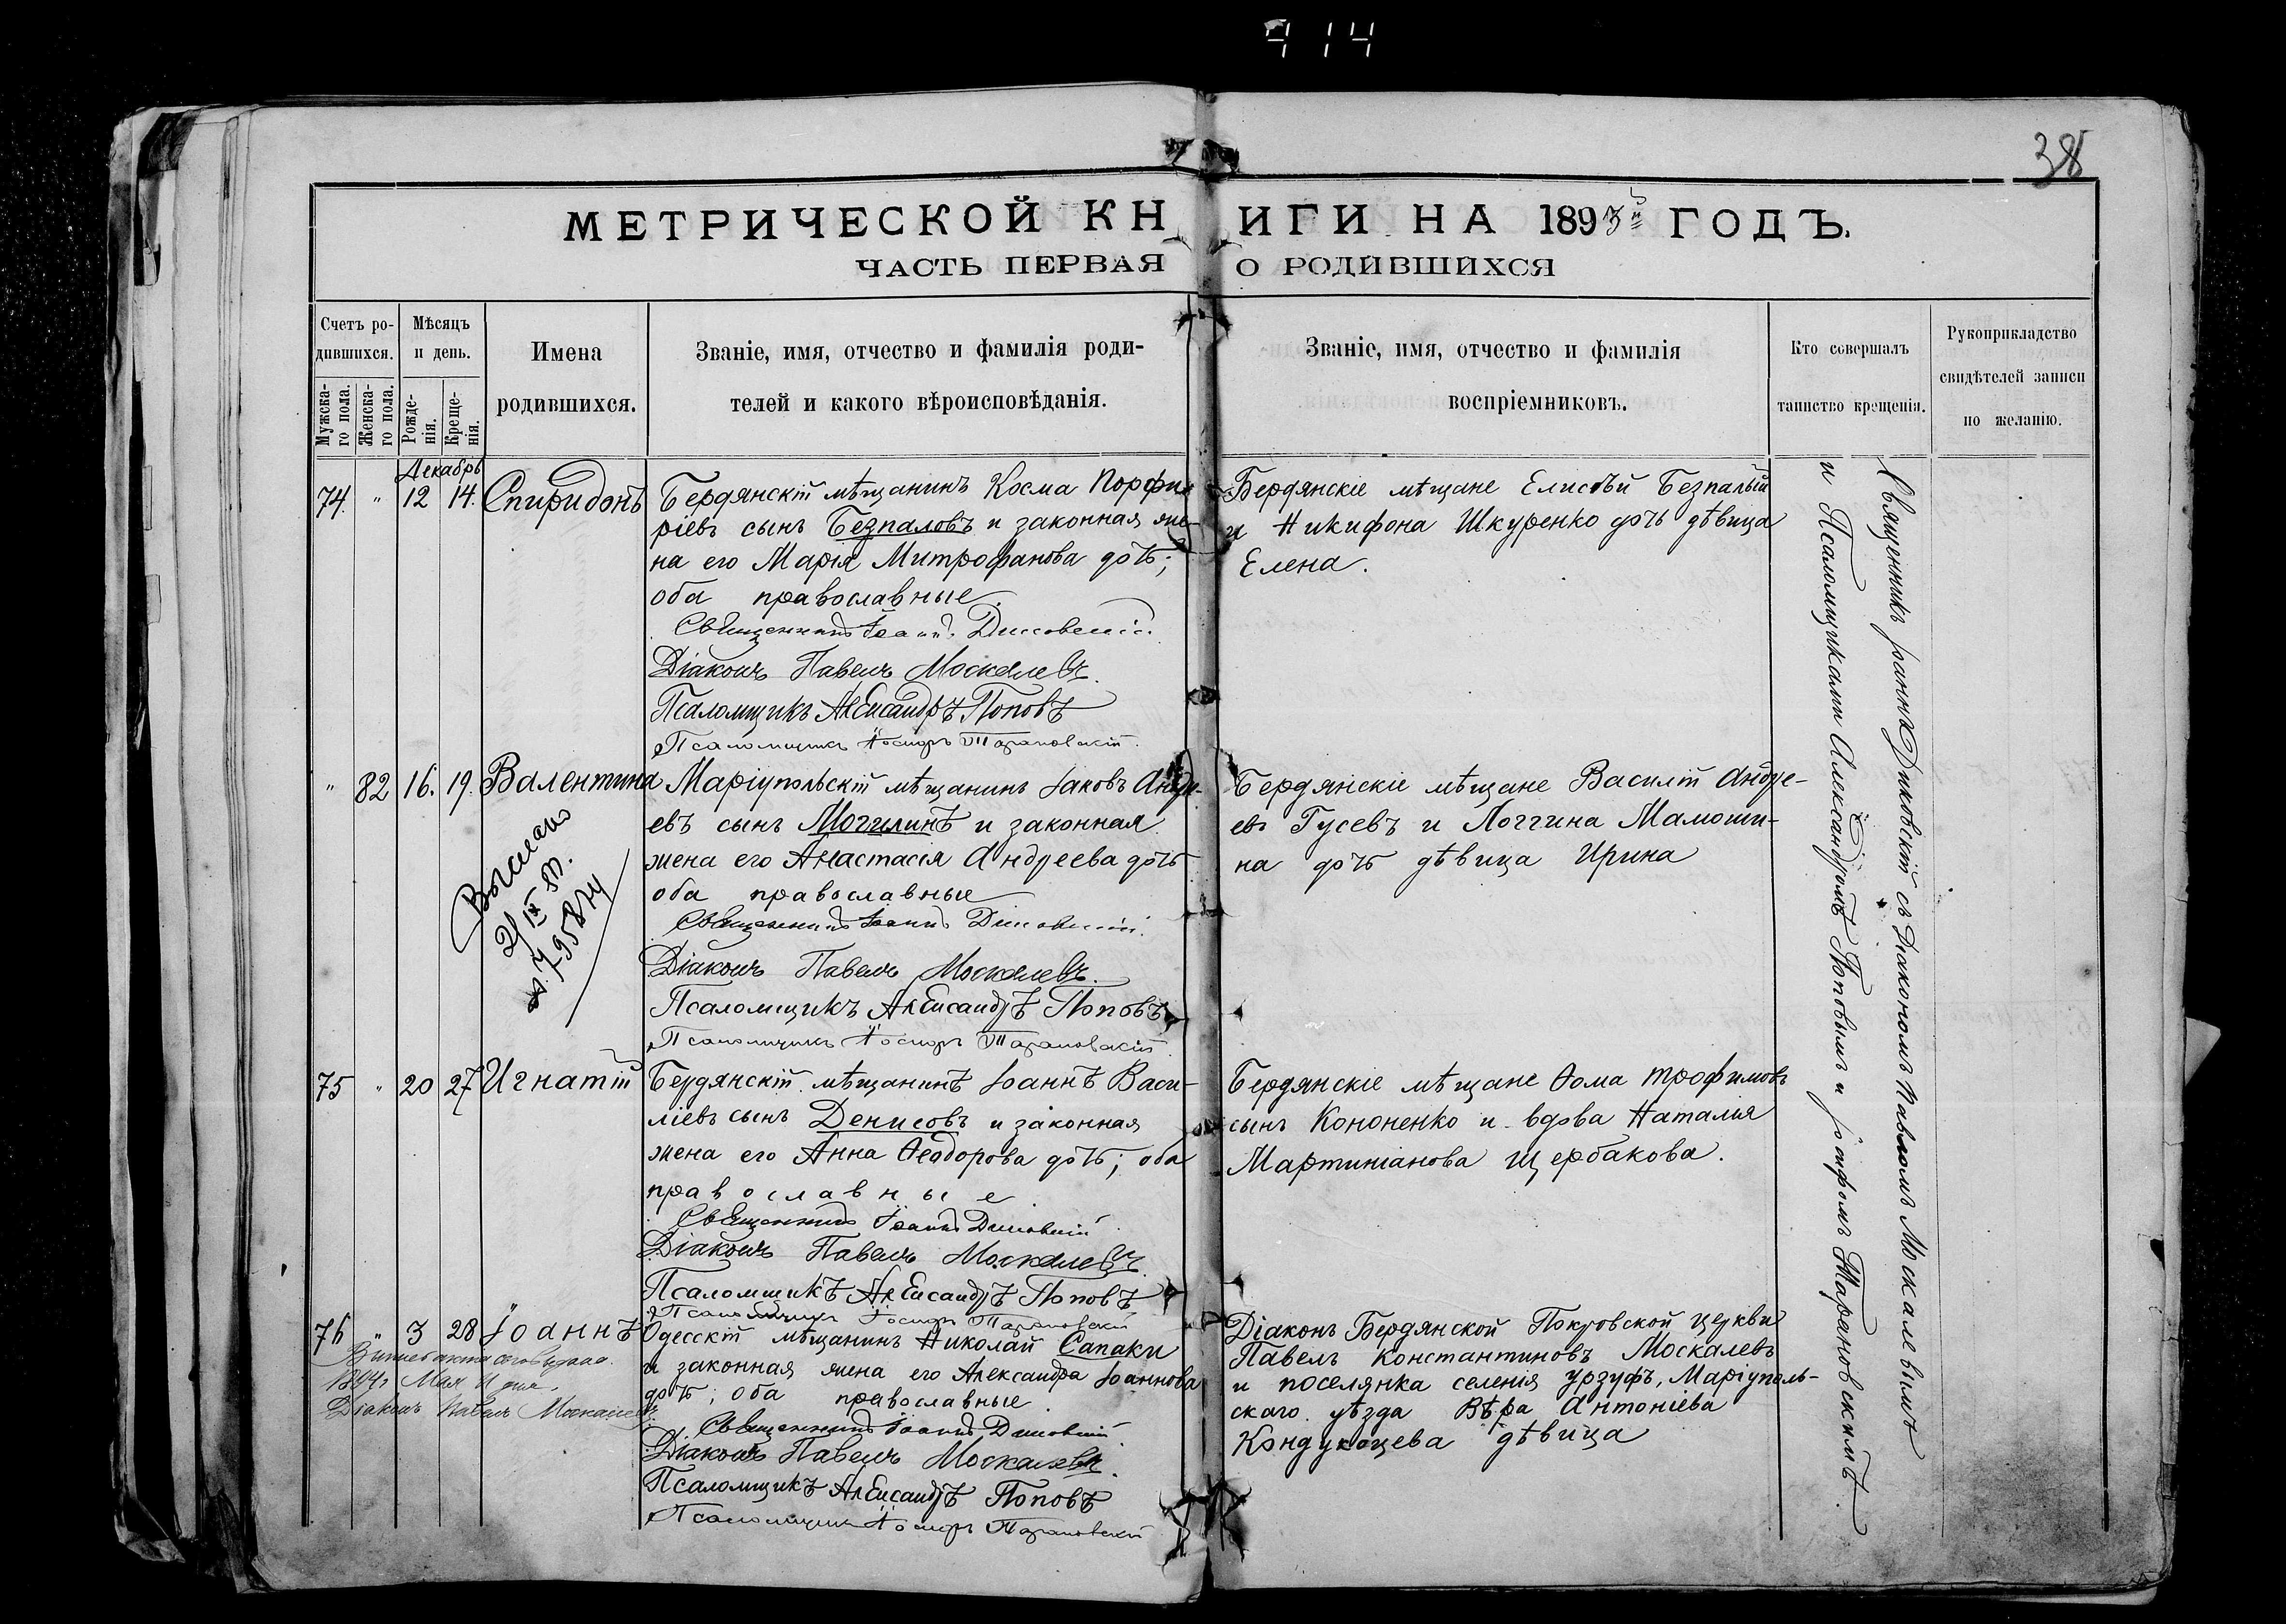 914
38
МЕТРИЧЕСКОЙ КНИГИ НА 1893й ГОДЪ.
ЧАСТЬ ПЕРВАЯ О РОДИВШИХСЯ
Счетъ ро-
дившихся.
Мужска-
го пола.
Женска-
го пола.
Мѣсяцъ
и день.
Рожде-
нія.
Креще-
нія.
Имена
родившихся.
Званіе, имя, отчество и фамилія роди-
телей и какого вѣроисповѣданія.
Званіе, имя, отчество и фамилія
воспріемниковъ.
Кто совершалъ
таинство крещенія.
Рукоприкладство
свидѣтелей записи
по желанію.
Декабрь
74. " 12 14. Спиридонъ
Бердянскій мѣщанинъ Косма Порфи-
ріевъ сынъ Безпаловъ и законная же-
на его Марія Митрофанова дочь;
оба православные.
Священникъ Іоаннъ
Діаконъ Павелъ Москалевъ.
Псаломщикъ Александръ Поповъ
Псаломщикъ Іосифъ Тарановскій.
Бердянскіе мѣщане Елисѣй Безпалый
и Никифона Шкуренко дочь дѣвица
Елена.
" 82 16. 19. Валентина
Маріупольскій мѣщанинъ Іаковъ Андре-
евъ сынъ Могилинъ и законная
жена его Анастасія Андреева дочь
оба православные
Священникъ Іоаннъ
Діаконъ Павелъ Москалевъ.
Псаломщикъ Александръ Поповъ
Псаломщикъ Іосифъ Тарановскій.
Бердянскіе мѣщане Василій Андре-
евъ Гусевъ и Логгина Мамоши-
на дочь дѣвица Ирина
Выслано
75 " 20 27 Игнатій
Бердянскій мѣщанинъ Іоаннъ Васи-
ліевъ сынъ Денисовъ и законная
жена его Анна Ѳеодорова дочь; оба
православные
Священникъ Іоаннъ
Діаконъ Павелъ Москалевъ.
Псаломщикъ Александръ Поповъ
Псаломщикъ Іосифъ Тарановскій
Бердянскіе мѣщане Ѳома Трофимовъ
сынъ Кононенко и вдова Наталія
Мартиніанова Щербакова.
76 " 3 28 Іоаннъ
1894г Мая 11 дня.
Діаконъ Павелъ Москалевъ.
Одесскій мѣщанинъ Николай Сапаки
и законная жена его Александра Іоаннова
дочь; оба православные
Священникъ Іоаннъ
Діаконъ Павелъ Москалевъ.
Псаломщикъ Александръ Поповъ
Псаломщикъ Іосифъ Тарановскій
Діаконъ Бердянской Покровской церкви
Павелъ Константиновъ Москалевъ
и поселянка селенія Урзуфъ, Маріуполь-
скаго уѣзда Вѣра Антоніева
дѣвица
Священникъ Іоаннъ съ Діакономъ Павломъ Москалевымъ
и Псаломщиками Александромъ Поповымъ и Іосифомъ Тарановскимъ.